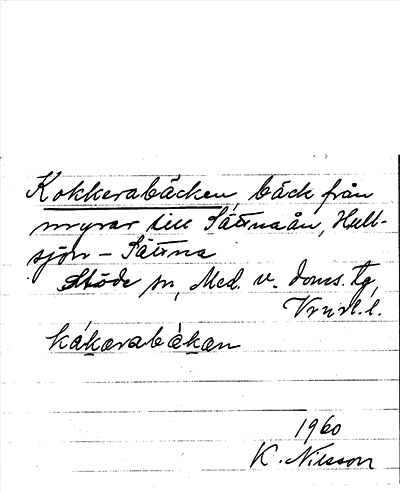 Kokkerabäcken, bäck från
myrar till Sättnaån, Hull-
sjön – Sättna
Stöde sn, Med. v. doms. tg,
Vrnl. l.
kákarabäkan
1960
K. Nilsson